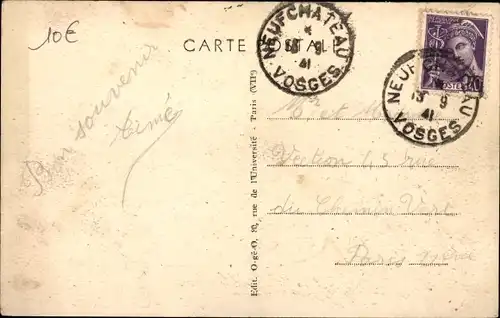 10€
CARTE POSTALE
NEUFCHATEAU
*
13 9
41
VOSGES
NEUFCHATEAU
13 9
41
VOSGES
Bon souvenir
Aimé
Mr et
45 rue
du Chemin Vert
Paris
Edit. O-gé-O, 80, rue de l'Université - Paris (VIIe)